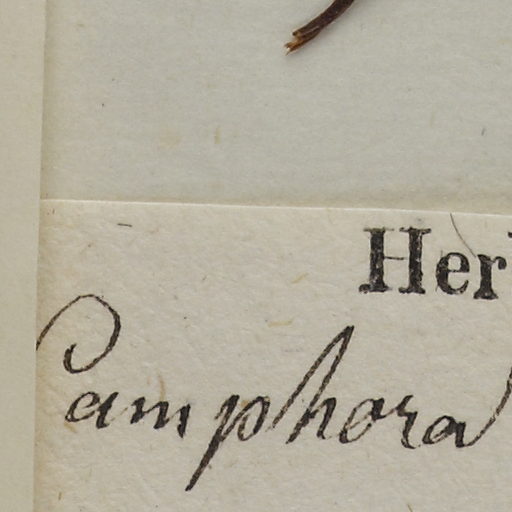 Her
Camphora